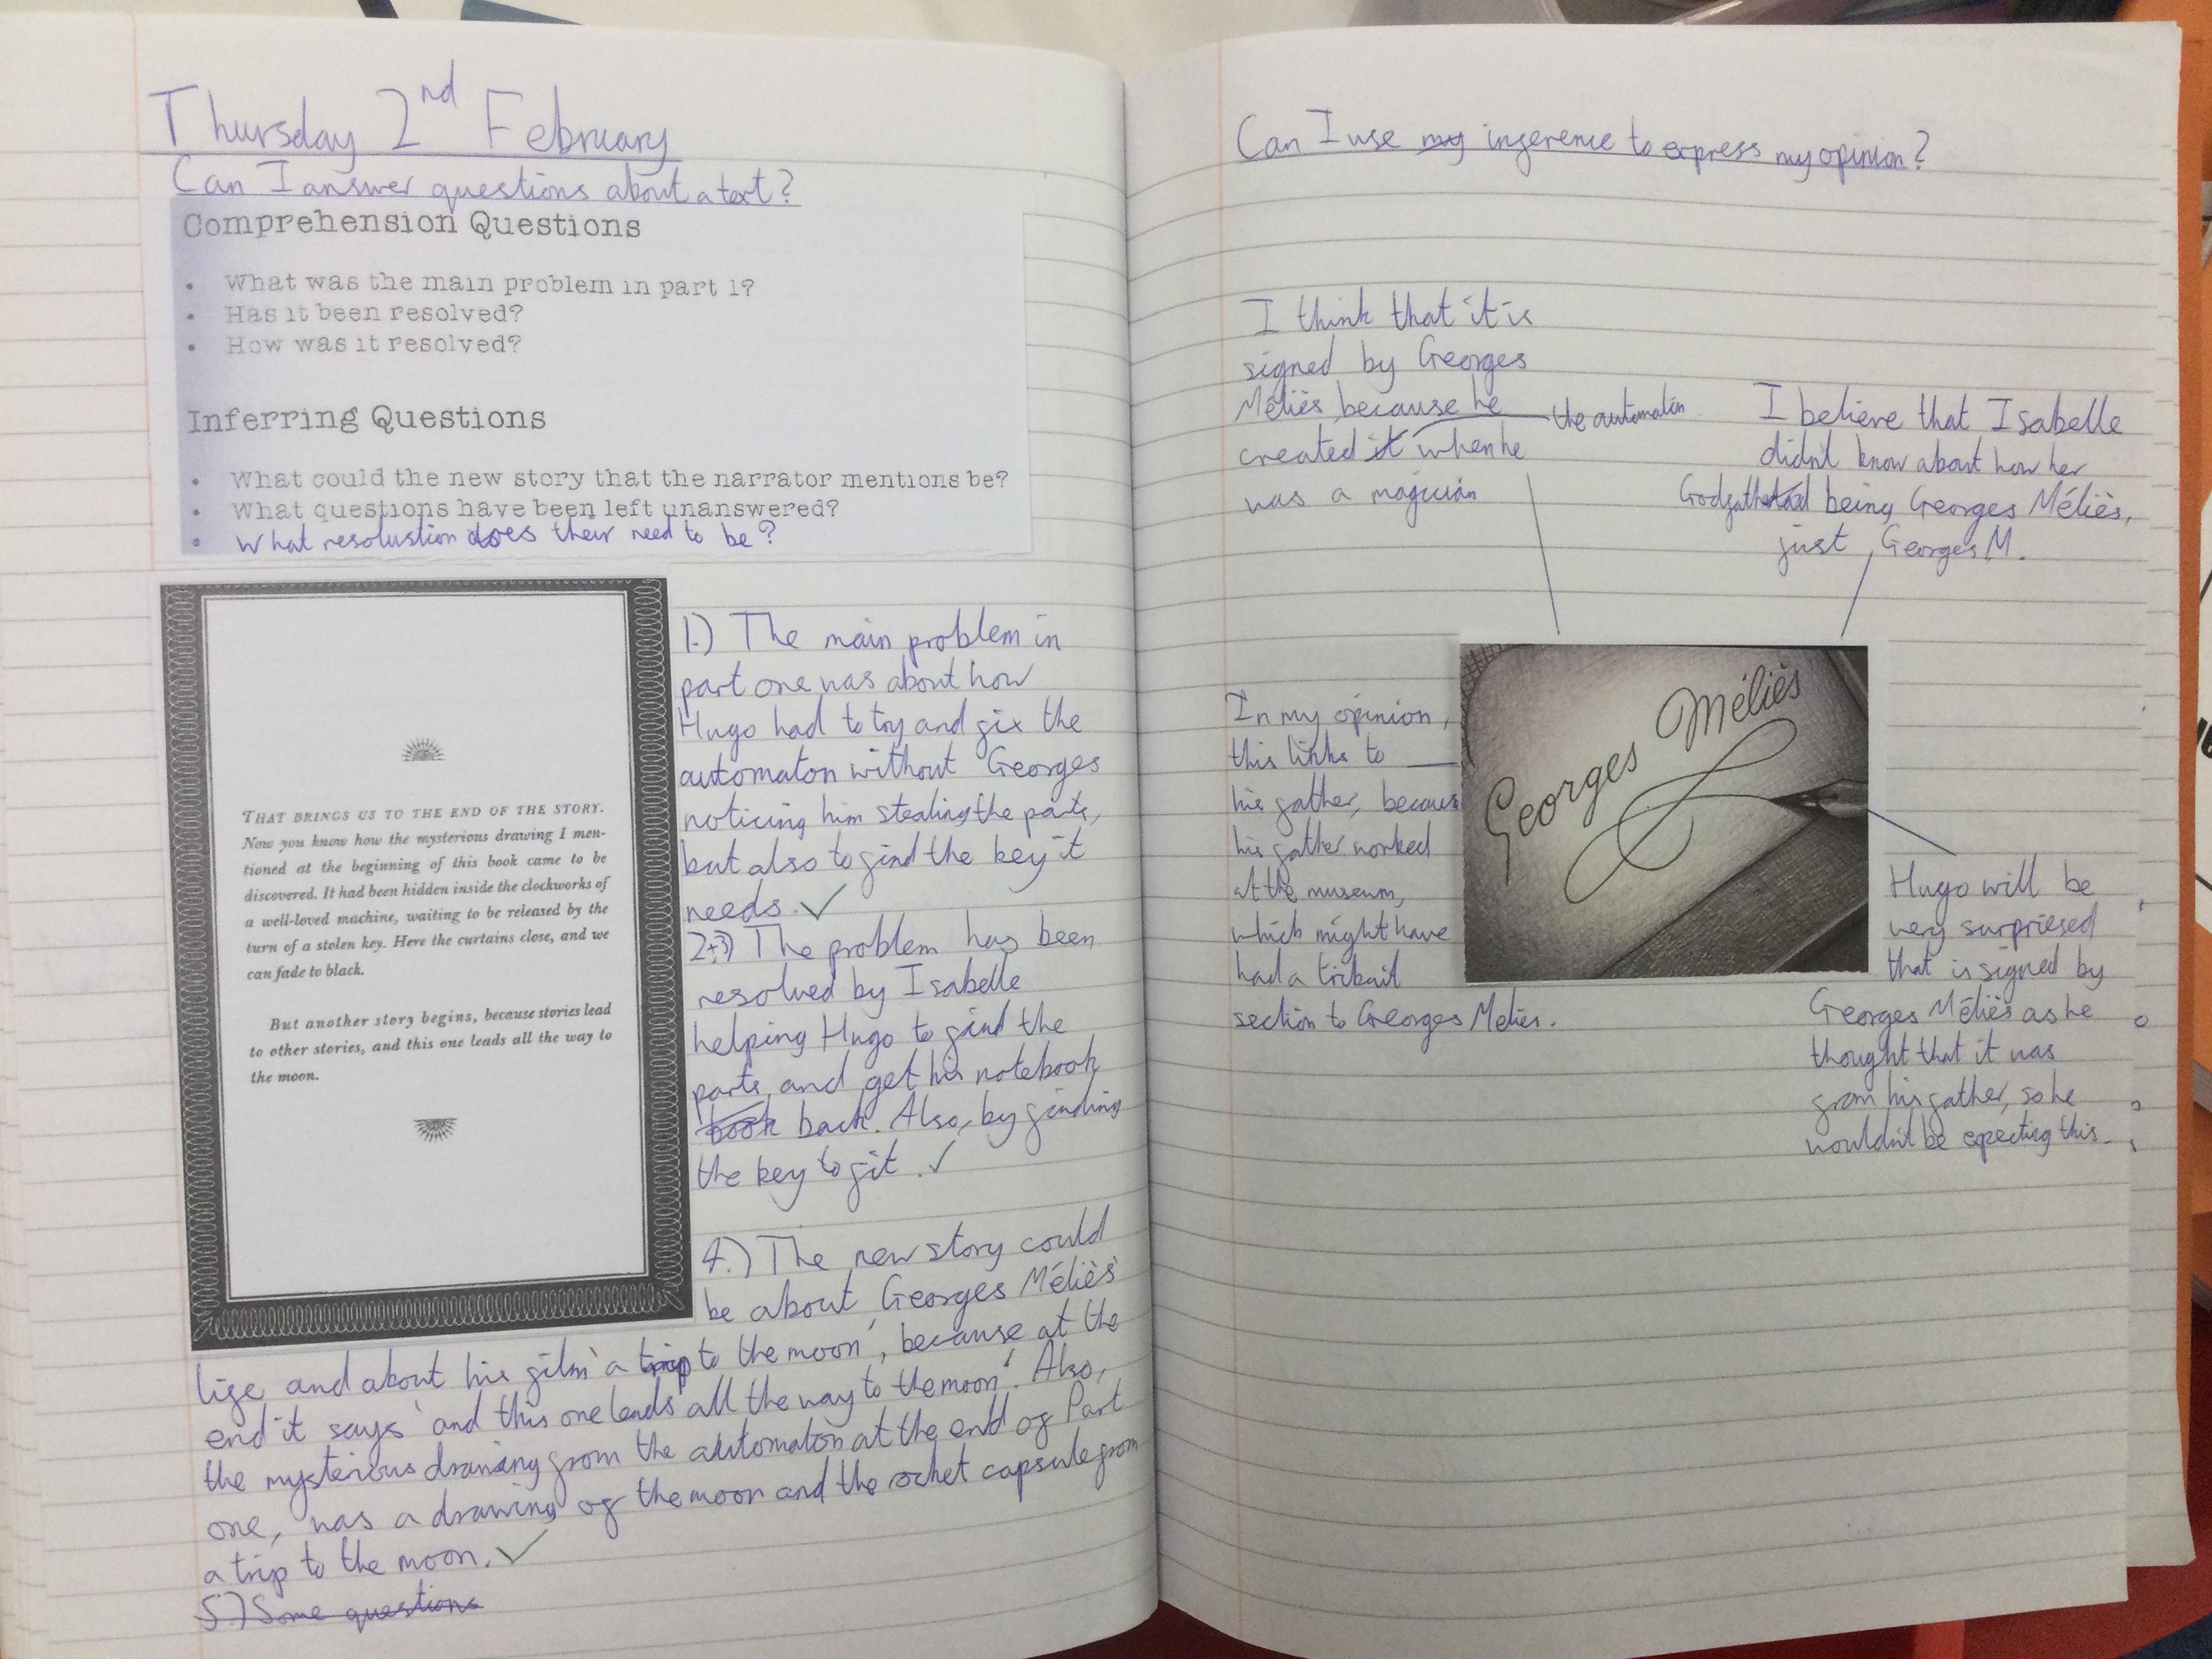 Thursday 2nd February
Can I answer questions about a text?
Comprehension Questions
• What was the main problem in part 1?
• Has it been resolved?
• How was it resolved?
Inferring Questions
• What could the new story that the narrator mentions be?
• What questions have been left unanswered?
• What resolustion does their need to be?
THAT BRINGS US TO THE END OF THE STORY.
Now you know how the mysterious drawing I men-
tioned at the beginning of this book came to be
discovered. It had been hidden inside the clockworks of
a well-loved machine, waiting to be released by the
turn of a stolen key. Here the curtains close, and we
can fade to black.
But another story begins, because stories lead
to other stories, and this one leads all the way to
the moon.
1.) The main problem in
part one was about how
Hugo had to try and fix the
automaton without Georges
noticing him stealing the parts,
but also to find the key it
needs.
2+3) The problem has been
resolved by Isabelle
helping Hugo to find the
parts, and get his notebook
book back. Also, by finding
the key to fit.
4.) The new story could
be about Georges Méliès'
life and about his film 'a trip to the moon', because at the
end it says 'and this one leads all the way to the moon'. Also,
the mysterious drawing from the automaton at the end of Part
one, was a drawing of the moon and the rocket capsule from
a trip to the moon.
5.) Some questions
Can I use my inference to express my opinion?
I think that it is
signed by Georges
Méliès because he
created it when he
was a magician
the automaton
I believe that Isabelle
didn't know about how her
Godfather being Georges Méliès,
just Georges M.
In my opinion,
this links to
his father, because
his father worked
at the museum,
which might have
had a tribuit
section to Georges Melies.
Georges Méliès
Hugo will be
very surpriesed
that is signed by
Georges Méliès as he
thought that it was
from his father, so he
wouldn't be expecting this.